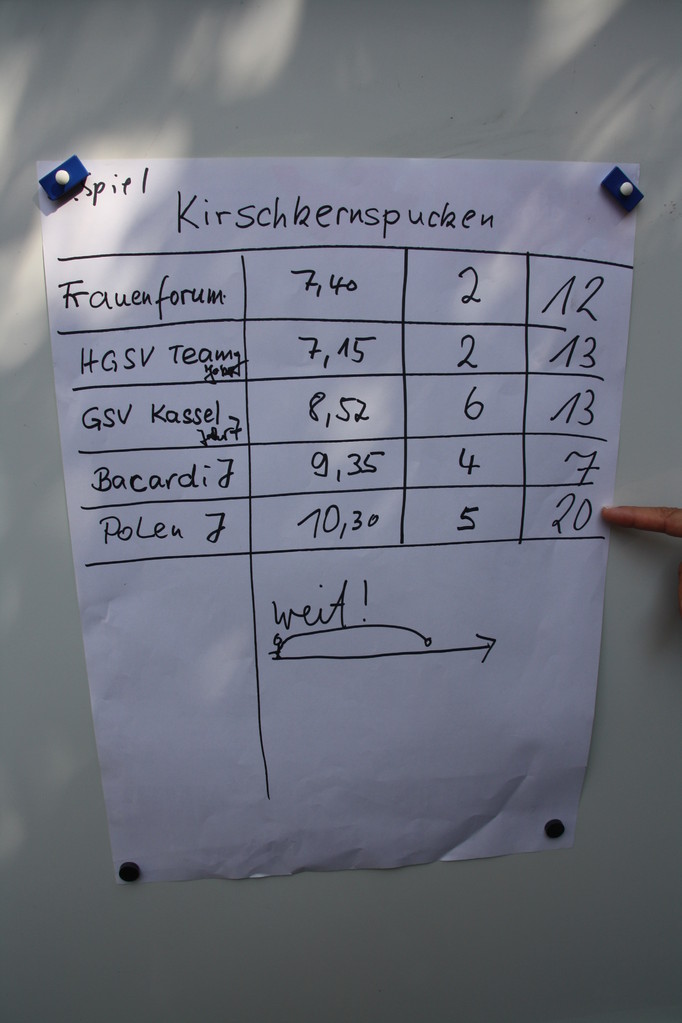 spiel
Kirschkernspucken
Frauenforum 7,40 2 12
HGSV Team 7,15 2 13
GSV Kassel 8,52 6 13
Bacardi J 9,35 4 7
Polen J 10,30 5 20
weit!